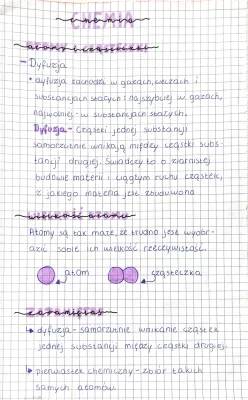 CHEMIA
chemia
atomy i cząsteczki
- Dyfuzja
• dyfuzja zachodzi w gazach, cieczach i
substancjach stałych najszybciej w gazach,
najwolniej - w substancjach stałych.
Dyfuzja - Cząstki jednej substancji
samorzutnie wnikają między cząstki subs-
tancji drugiej. Świadczy to o ziarnistej
budowie materii i ciągłym ruchu cząsteczek,
z jakiego materia jest zbudowana
wielkość atomu
Atomy są tak małe, że trudno jest wyobr-
azić sobie ich wielkość rzeczywistość.
atom
cząsteczka
zapamiętaj
↳ dyfuzja - samorzutnie wnikanie cząstek
jednej substancji między cząstki drugiej
↳ pierwiastek chemiczny - zbiór takich
samych atomów.